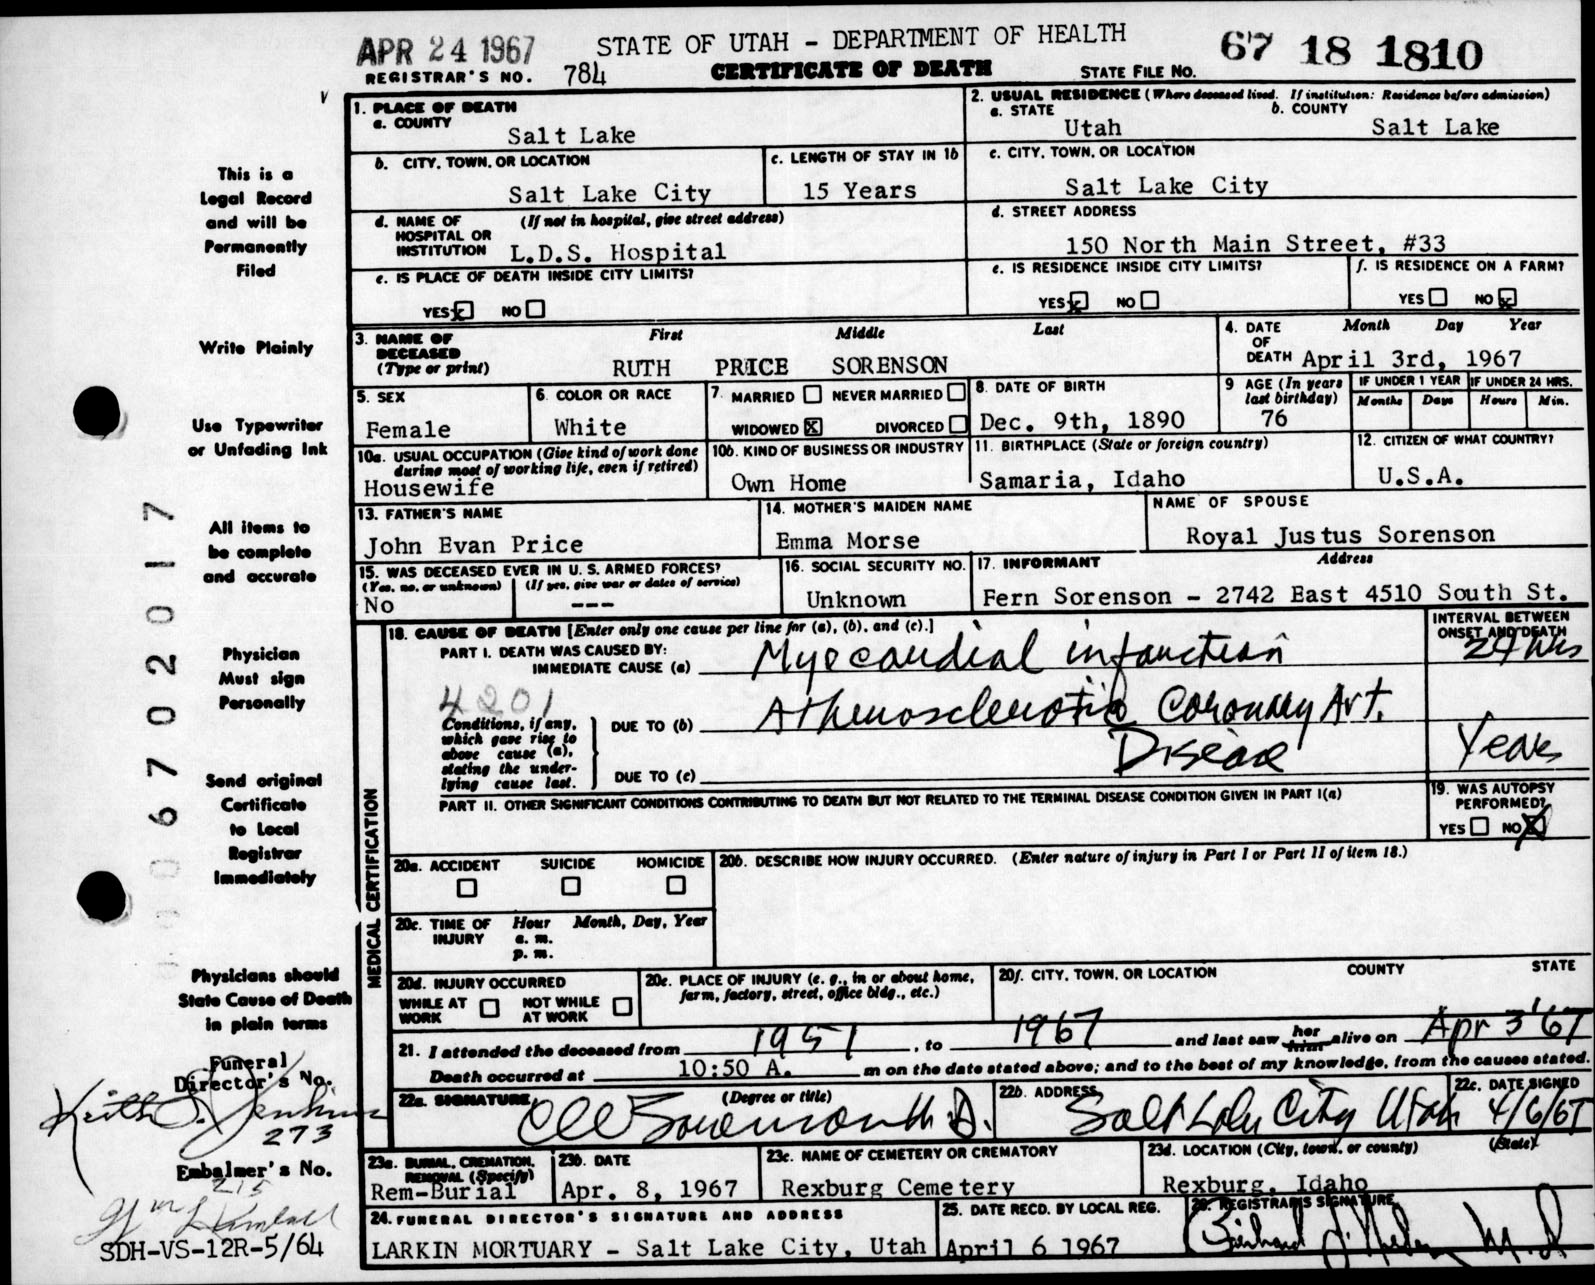 APR 24 1967
STATE OF UTAH - DEPARTMENT OF HEALTH
67 18 1810
REGISTRAR'S NO. 784
CERTIFICATE OF DEATH
STATE FILE NO.
This is a
Legal Record
and will be
Permanently
Filed
Write Plainly
Use Typewriter
or Unfading Ink
All items to
be complete
and accurate
Physician
Must sign
Personally
Send original
Certificate
to Local
Registrar
Immediately
Physicians should
State Cause of Death
in plain terms
Funeral
Director's No.
Keith O. Jenkins
273
Embalmer's No.
215
Kimball
SDH-VS-12R-5/64
006702017
1. PLACE OF DEATH
a. COUNTY
Salt Lake
2. USUAL RESIDENCE (Where deceased lived. If institution: Residence before admission)
a. STATE
Utah
b. COUNTY
Salt Lake
b. CITY, TOWN, OR LOCATION
Salt Lake City
c. LENGTH OF STAY IN 1b
15 Years
c. CITY, TOWN, OR LOCATION
Salt Lake City
d. NAME OF HOSPITAL OR INSTITUTION
(If not in hospital, give street address)
L.D.S. Hospital
d. STREET ADDRESS
150 North Main Street, #33
e. IS PLACE OF DEATH INSIDE CITY LIMITS?
YES x NO
e. IS RESIDENCE INSIDE CITY LIMITS?
YES x NO
f. IS RESIDENCE ON A FARM?
YES NO x
3. NAME OF DECEASED
(Type or print)
First Middle Last
RUTH PRICE SORENSON
4. DATE OF DEATH
Month Day Year
April 3rd, 1967
5. SEX
Female
6. COLOR OR RACE
White
7. MARRIED NEVER MARRIED
WIDOWED X DIVORCED
8. DATE OF BIRTH
Dec. 9th, 1890
9 AGE (In years last birthday)
76
IF UNDER 1 YEAR
Months Days
IF UNDER 24 HRS.
Hours Min.
10a. USUAL OCCUPATION (Give kind of work done
during most of working life, even if retired)
Housewife
10b. KIND OF BUSINESS OR INDUSTRY
Own Home
11. BIRTHPLACE (State or foreign country)
Samaria, Idaho
12. CITIZEN OF WHAT COUNTRY?
U.S.A.
13. FATHER'S NAME
John Evan Price
14. MOTHER'S MAIDEN NAME
Emma Morse
NAME OF SPOUSE
Royal Justus Sorenson
15. WAS DECEASED EVER IN U.S. ARMED FORCES?
(Yes, no, or unknown) (If yes, give war or dates of service)
No ---
16. SOCIAL SECURITY NO.
Unknown
17. INFORMANT Address
Fern Sorenson - 2742 East 4510 South St.
18. CAUSE OF DEATH [Enter only one cause per line for (a), (b), and (c).]
INTERVAL BETWEEN
ONSET AND DEATH
PART I. DEATH WAS CAUSED BY:
IMMEDIATE CAUSE (a) Myocardial infarction
24 hrs
4201
Conditions, if any,
which gave rise to
above cause (a),
stating the under-
lying cause last.
DUE TO (b) Atherosclerotic Coronary Art.
Disease
Years
DUE TO (c)
PART II. OTHER SIGNIFICANT CONDITIONS CONTRIBUTING TO DEATH BUT NOT RELATED TO THE TERMINAL DISEASE CONDITION GIVEN IN PART I(a)
19. WAS AUTOPSY
PERFORMED?
YES NO X
MEDICAL CERTIFICATION
20a. ACCIDENT SUICIDE HOMICIDE
20b. DESCRIBE HOW INJURY OCCURRED. (Enter nature of injury in Part I or Part II of item 18.)
20c. TIME OF INJURY
Hour Month, Day, Year
a. m.
p. m.
20d. INJURY OCCURRED
WHILE AT WORK NOT WHILE AT WORK
20e. PLACE OF INJURY (e. g., in or about home,
farm, factory, street, office bldg., etc.)
20f. CITY, TOWN, OR LOCATION COUNTY STATE
21. I attended the deceased from 1951, to 1967 and last saw her him alive on Apr 3 '67
Death occurred at 10:50 A. m on the date stated above; and to the best of my knowledge, from the causes stated.
22a. SIGNATURE (Degree or title)
22b. ADDRESS
Salt Lake City Utah
22c. DATE SIGNED
4/6/67
23a. BURIAL, CREMATION, REMOVAL (Specify)
Rem-Burial
23b. DATE
Apr. 8, 1967
23c. NAME OF CEMETERY OR CREMATORY
Rexburg Cemetery
23d. LOCATION (City, town, or county) (State)
Rexburg, Idaho
24. FUNERAL DIRECTOR'S SIGNATURE AND ADDRESS
LARKIN MORTUARY - Salt Lake City, Utah
25. DATE RECD. BY LOCAL REG.
April 6 1967
26. REGISTRAR'S SIGNATURE